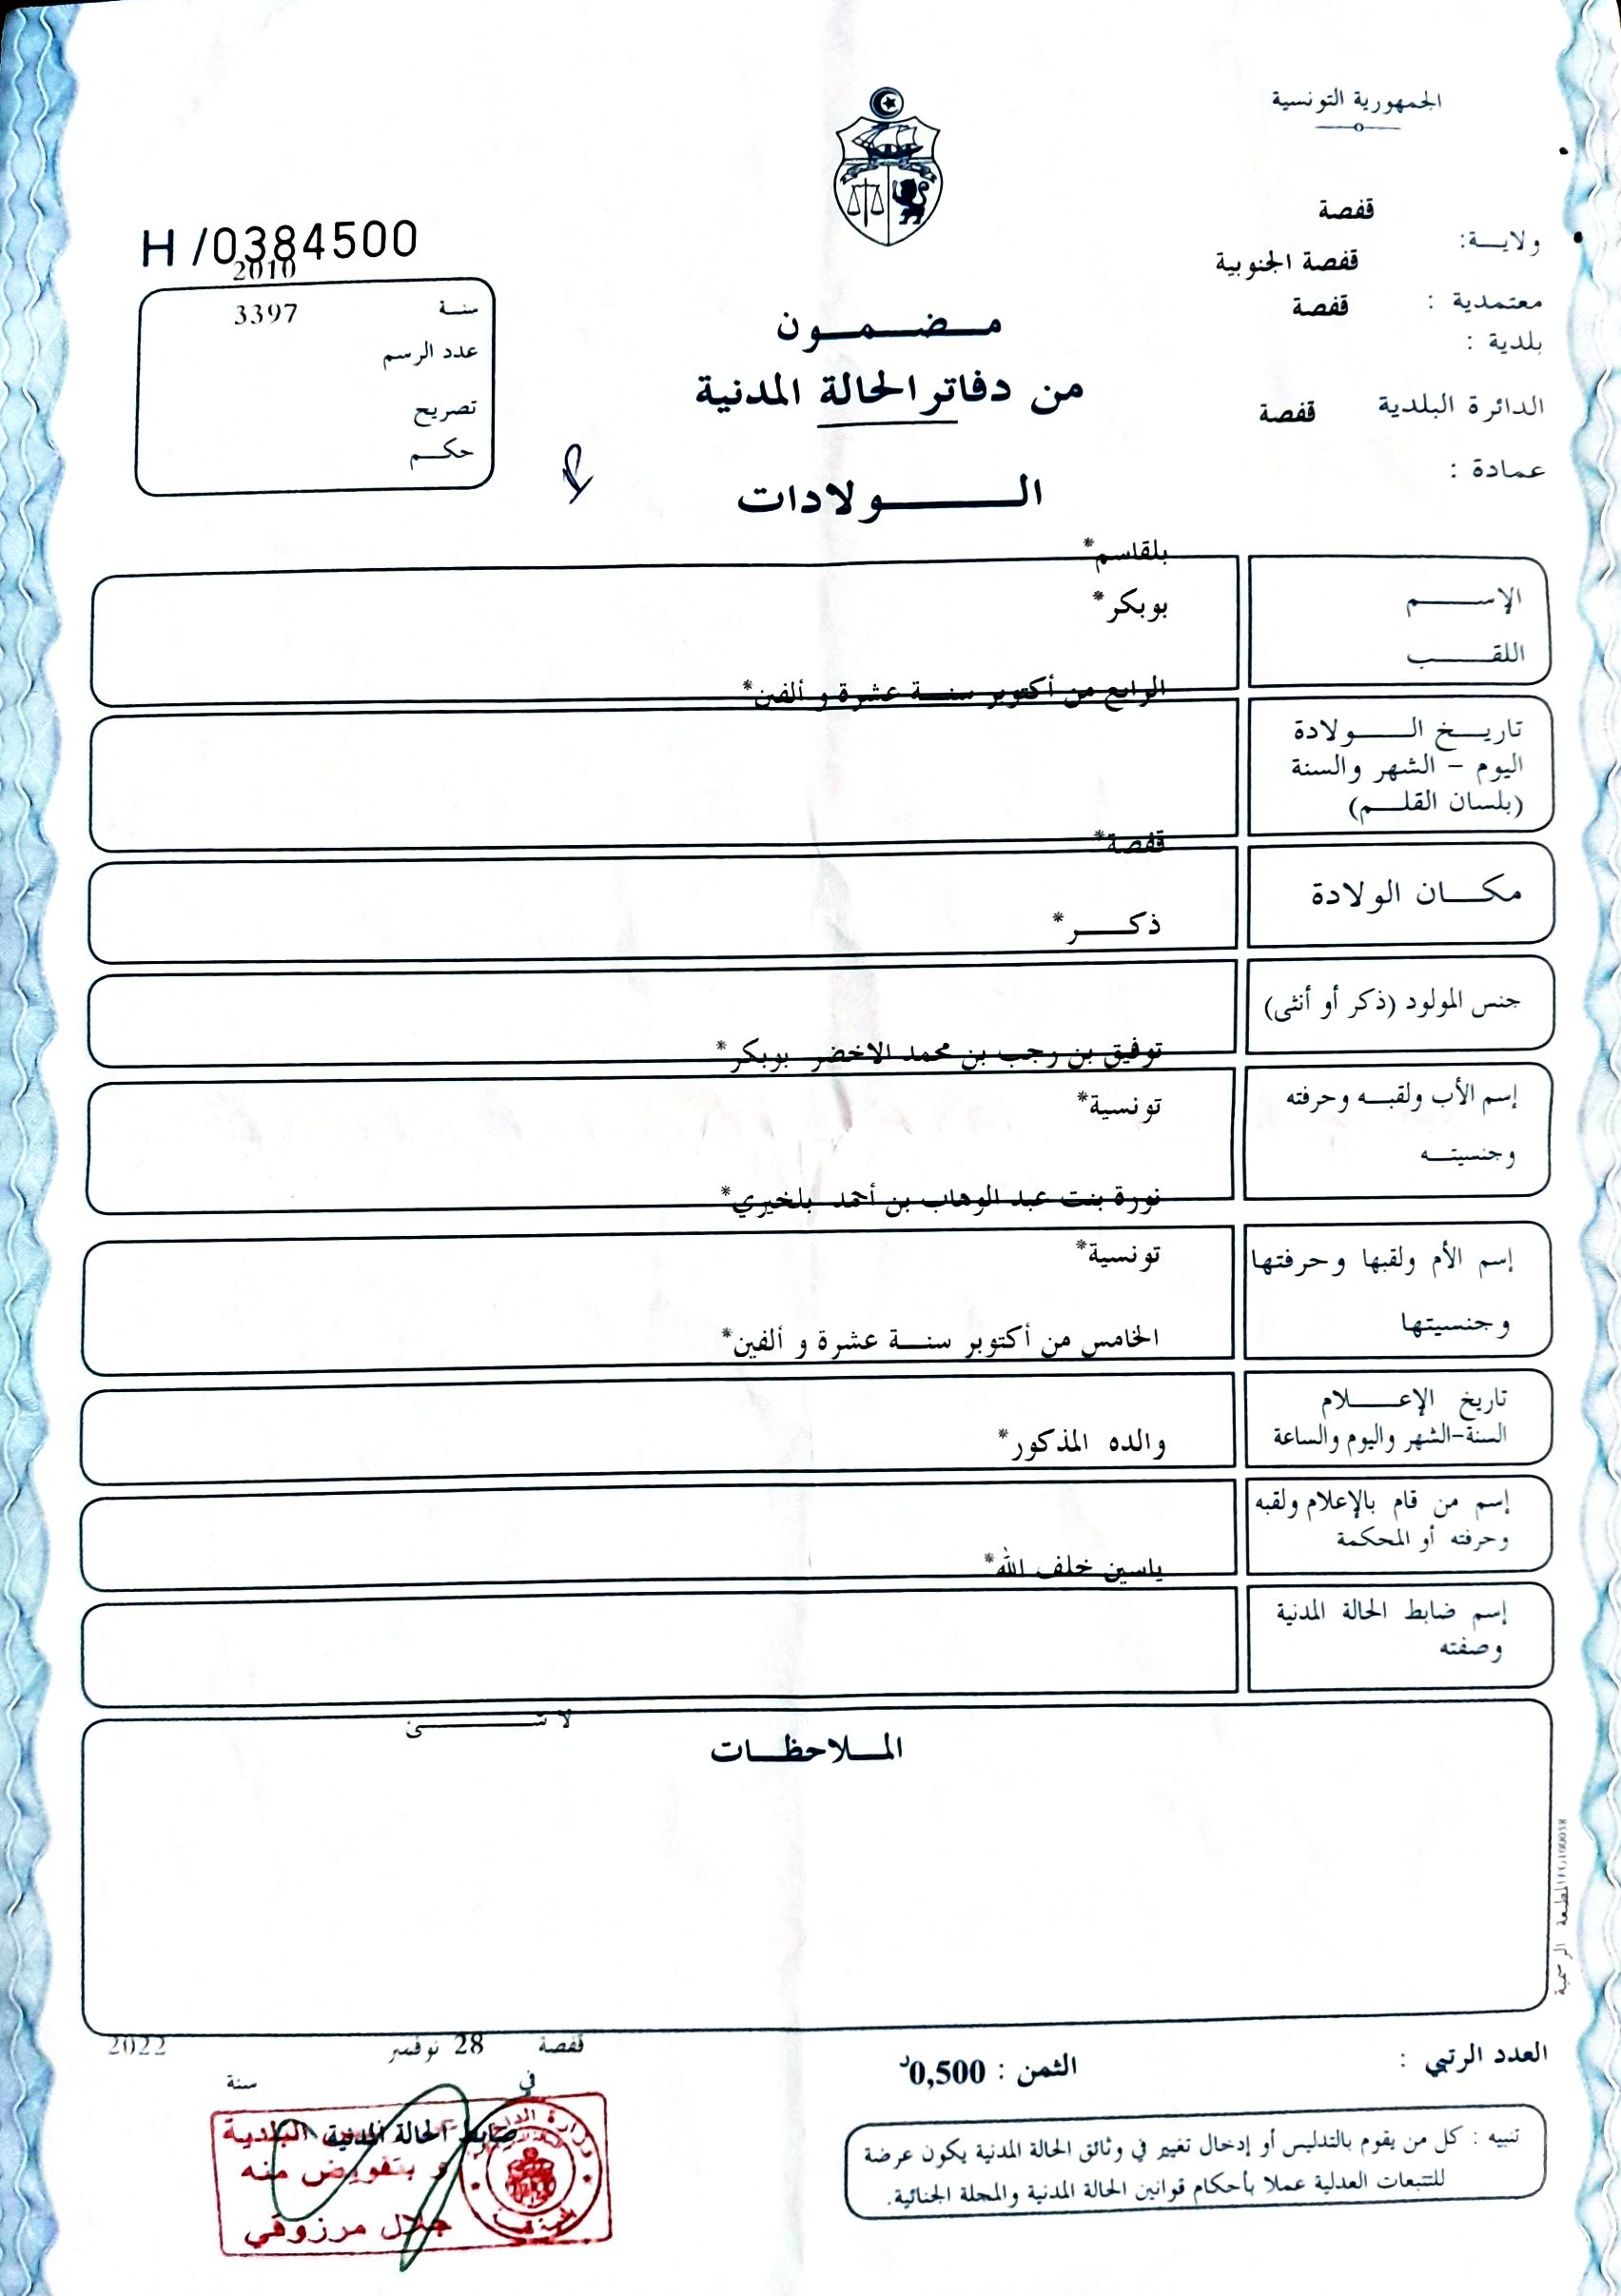 الجمهورية التونسية
قفصة
ولاية:
قفصة الجنوبية
معتمدية :
قفصة
بلدية :
الدائرة البلدية قفصة
عمادة :
H /0384500
2010
سنة 3397
عدد الرسم
تصريح
حكم
مضمون
من دفاتر الحالة المدنية
الولادات
بلقاسم*
الإسم
بوبكر*
اللقب
الرابع من أكتوبر سنة عشرة و ألفين*
تاريخ الولادة
اليوم - الشهر والسنة
(بلسان القلم)
قفصة*
مكان الولادة
ذكر*
جنس المولود (ذكر أو أنثى)
توفيق بن رجب بن محمد الاخضر بوبكر*
إسم الأب ولقبه وحرفته
تونسية*
وجنسيته
نورة بنت عبد الوهاب بن أحمد بلخيري*
إسم الأم ولقبها وحرفتها
تونسية*
وجنسيتها
الخامس من أكتوبر سنة عشرة و ألفين*
تاريخ الإعلام
السنة-الشهر واليوم والساعة
والده المذكور*
إسم من قام بالإعلام ولقبه
وحرفته أو المحكمة
ياسين خلف الله*
إسم ضابط الحالة المدنية
وصفته
لا شئ
الملاحظات
المطبعة الرسمية
العدد الرتبي :
الثمن : 0,500د
قفصة 28 نوفمبر 2022
في سنة
ضابط الحالة المدنية
البلدية
و بتفويض منه
جلال مرزوقي
تنبيه : كل من يقوم بالتدليس أو إدخال تغيير في وثائق الحالة المدنية يكون عرضة
للتتبعات العدلية عملا بأحكام قوانين الحالة المدنية والمجلة الجنائية.